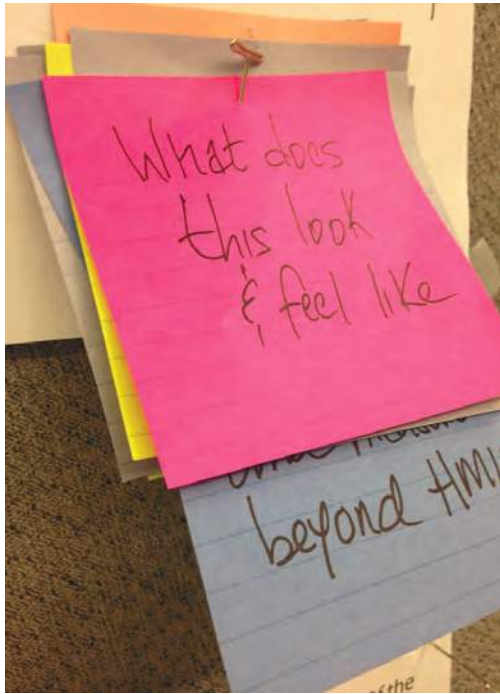 What does
this look
& feel like
beyond HMI
of the